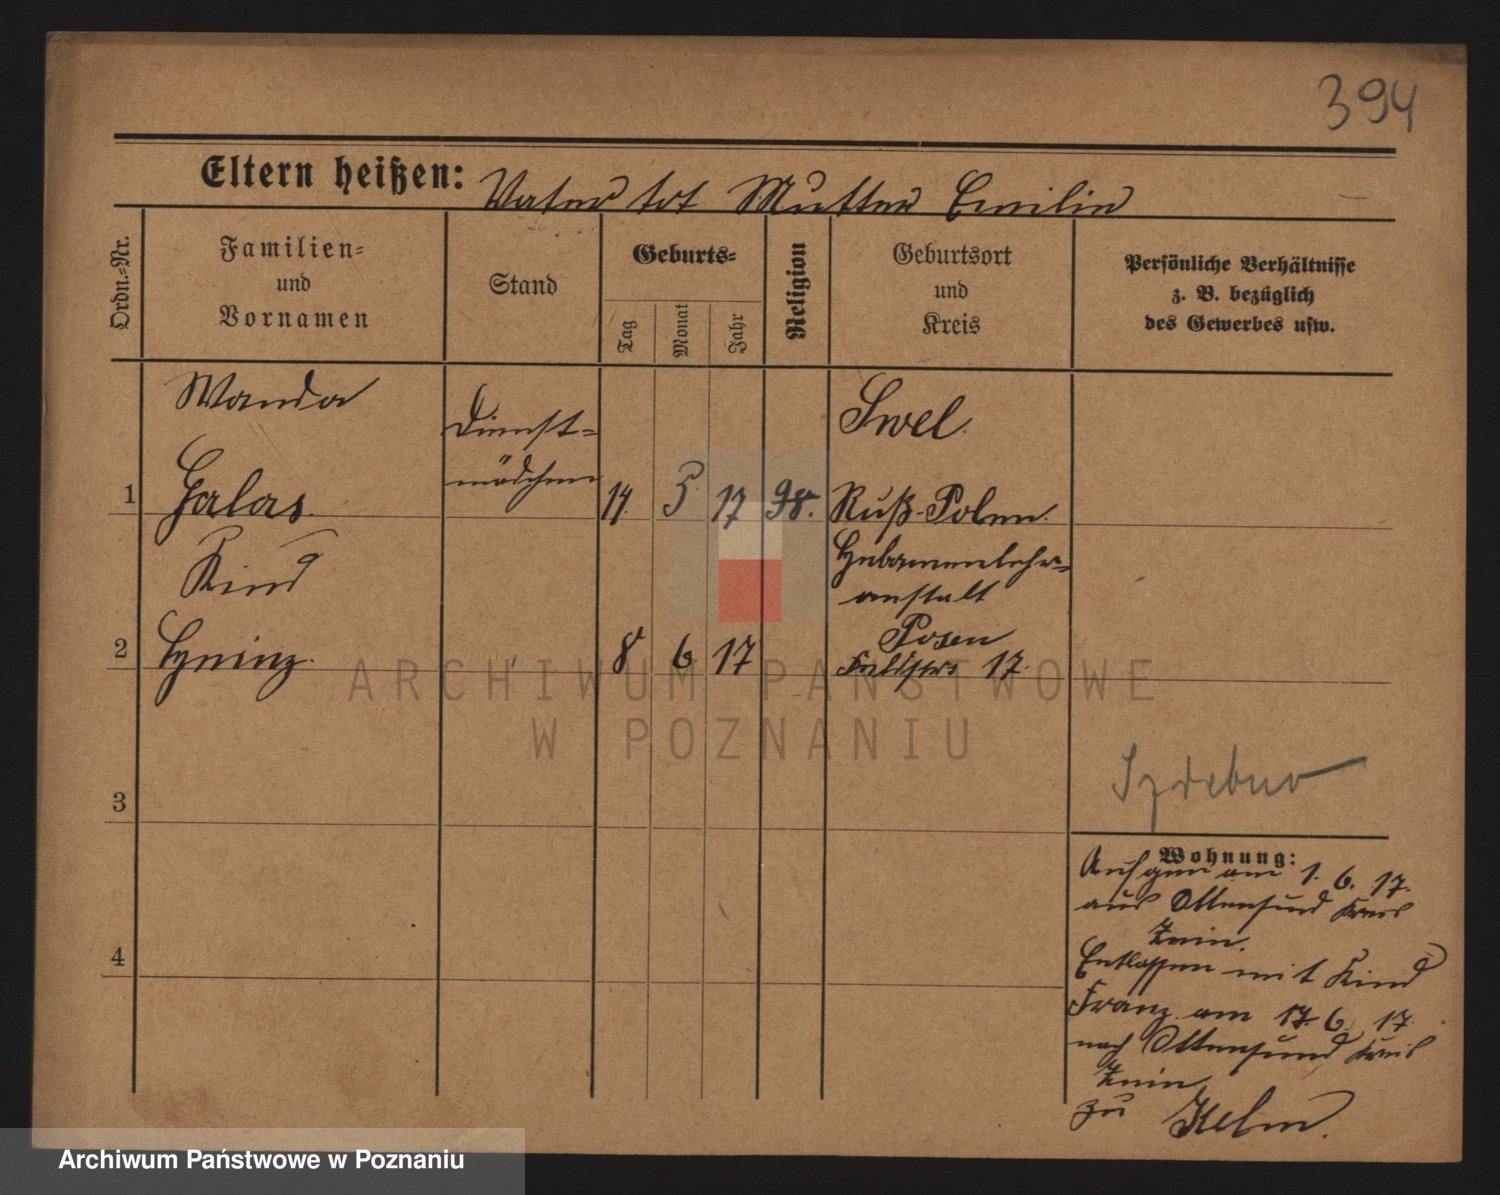 394
Eltern heißen: Vater tot Mutter Emilie
Ordn.-Nr.
Familien-
und
Vornamen
Stand
Geburts-
Tag
Monat
Jahr
Religion
Geburtsort
und
Kreis
Persönliche Verhältnisse
z. B. bezüglich
des Gewerbes usw.
Wanda
Dienst-
mädchen
1 Galas
17 98.
Russ-Polen.
Kind
Hebammenlehr-
anstalt
Posen
2
8 6 17
17.
3
4
Wohnung:
Aufgen am 1. 6. 17.
aus Ottensund Kreis
Znin.
Entlassen mit Kind
Franz am 17. 6. 17
nach Ottensund Kreis
Znin
zu
ARCHIWUM PAŃSTWOWE
W POZNANIU
Archiwum Państwowe w Poznaniu